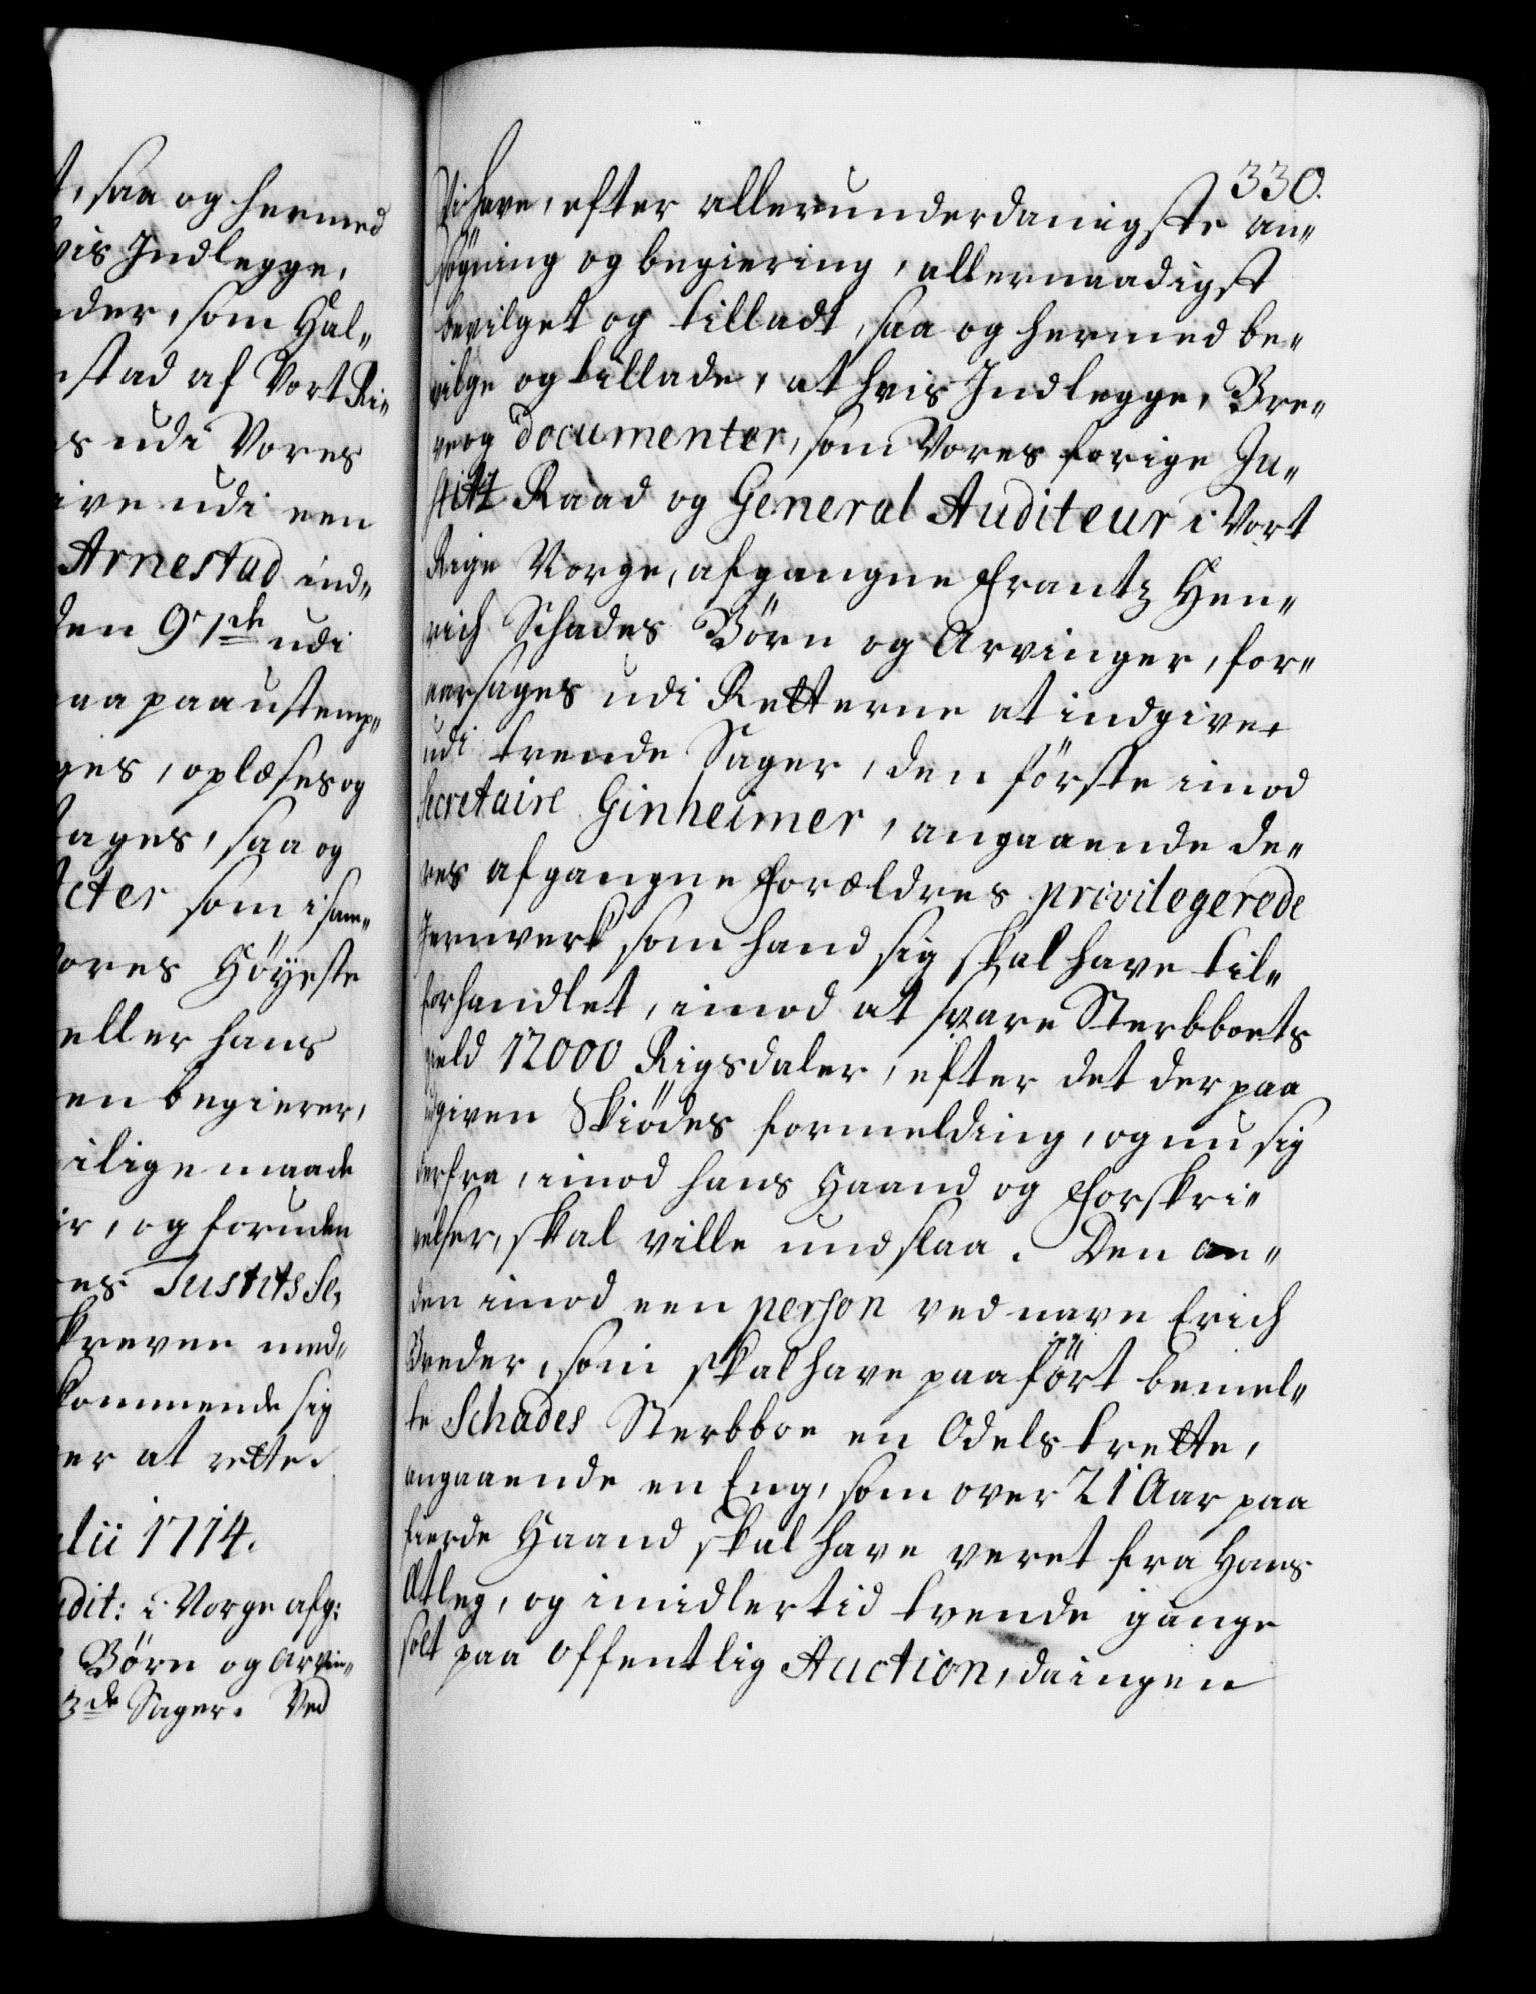 t, saa og hermed
vis Indlegge,
der, som Hal„
stad af Vort Ri„
s udi Vores
ive udi een
Arnestad ind„
den 91de udi
aa paa ustemp„
ges, oplæses og
tages, saa og
Acter som i sam„
ores Höyeste
eller hans
en begierer,
ilige maade
ir, og foruden
es Justits Se„
kreven med„
kommende sig
er at rette.
lii 1714.
udit: i Norge afg:
Börn og Arvin„
3de Sager. Ved
330.
Vi have, efter allerunderdanigste an„
sögning og begiering, allernaadigst
bevilget og tilladt, saa og hermed be„
vilge og tillade, at hvis Indlegge, Bre„
ve og documenter, som Vores forige Ju„
stitz Raad og General Auditeur i Vort
Rige Norge, afgangne Frantz Hen„
rich Schades Börn og Arvinger, for„
aarsages udi Retterne at indgive.
udi trende Sager, den förste imod
Secretaire Ginheimer, angaaende de„
res afgangne Forældres privilegerede
Jernverk som hand sig skal have til„
forhandlet, imod at svare Sterbboets
gield 12000 Rigsdaler, efter det der paa
udgiven Skiödes formelding, og nu sig
derfra, imod hans Haand og Forskri„
velser, skal ville undslaa. Den an„
den imod een person ved navn Erich
Breder, som skal have paafört bemel„
te Schades Sterbboe en Odels trette,
angaaende en Eng, som over 21 Aar paa
fierde Haand skal have veret fra Hans
Atleg, og imidlertid tvende gange
solt paa offentlig Auction, da ingen